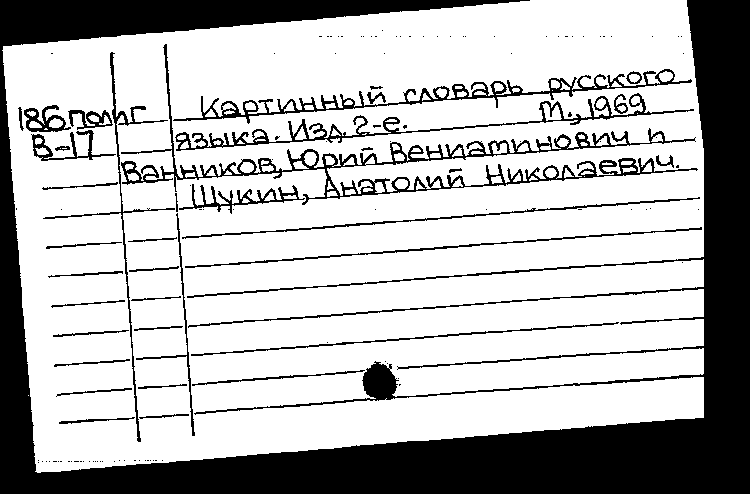 186полиг Картинный словарь русского
В-17 языка. Изд. 2-е. М., 1969
Ванников, Юрий Вениаминович и
Щукин, Анатолий Николаевич.